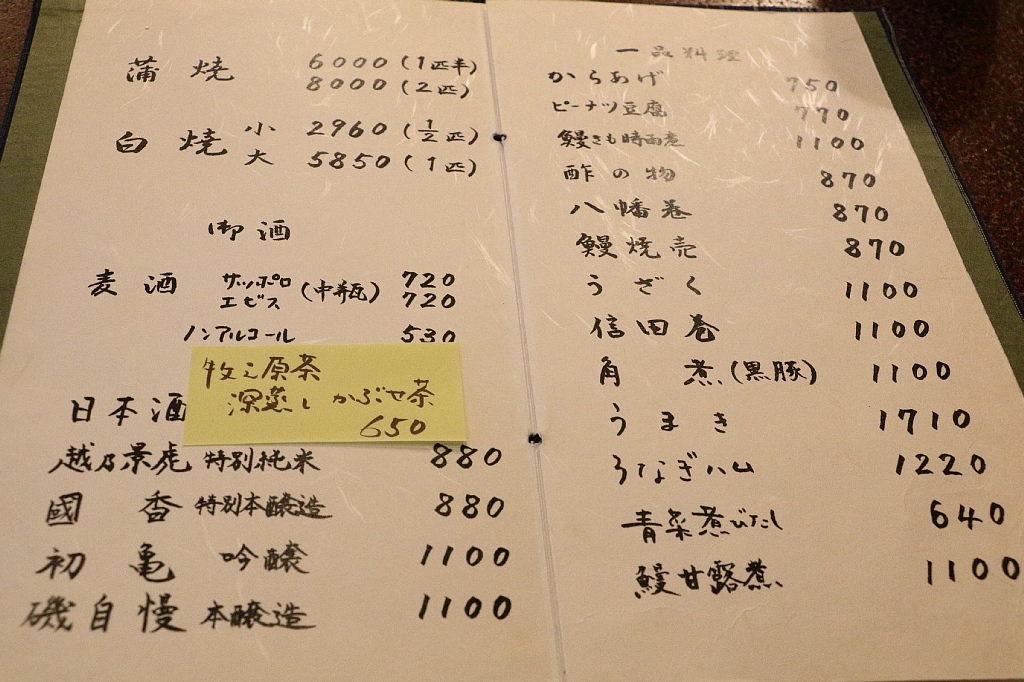 蒲焼 6000(1匹半)
8000(2匹)
白焼 小 2960(1/2匹)
大 5850(1匹)
御酒
麦酒 サッポロ (中瓶) 720
エビス 720
ノンアルコール 530
牧之原茶
深蒸し かぶせ茶
650
日本酒
越乃景虎 特別純米 880
國香 特別本醸造 880
初亀 吟醸 1100
磯自慢 本醸造 1100
一品料理
からあげ 750
ピーナツ豆腐 770
鰻きも時雨煮 1100
酢の物 870
八幡巻 870
鰻焼売 870
うざく 1100
信田巻 1100
角煮(黒豚) 1100
うまき 1710
うなぎハム 1220
青菜煮びたし 640
鰻甘露煮 1100